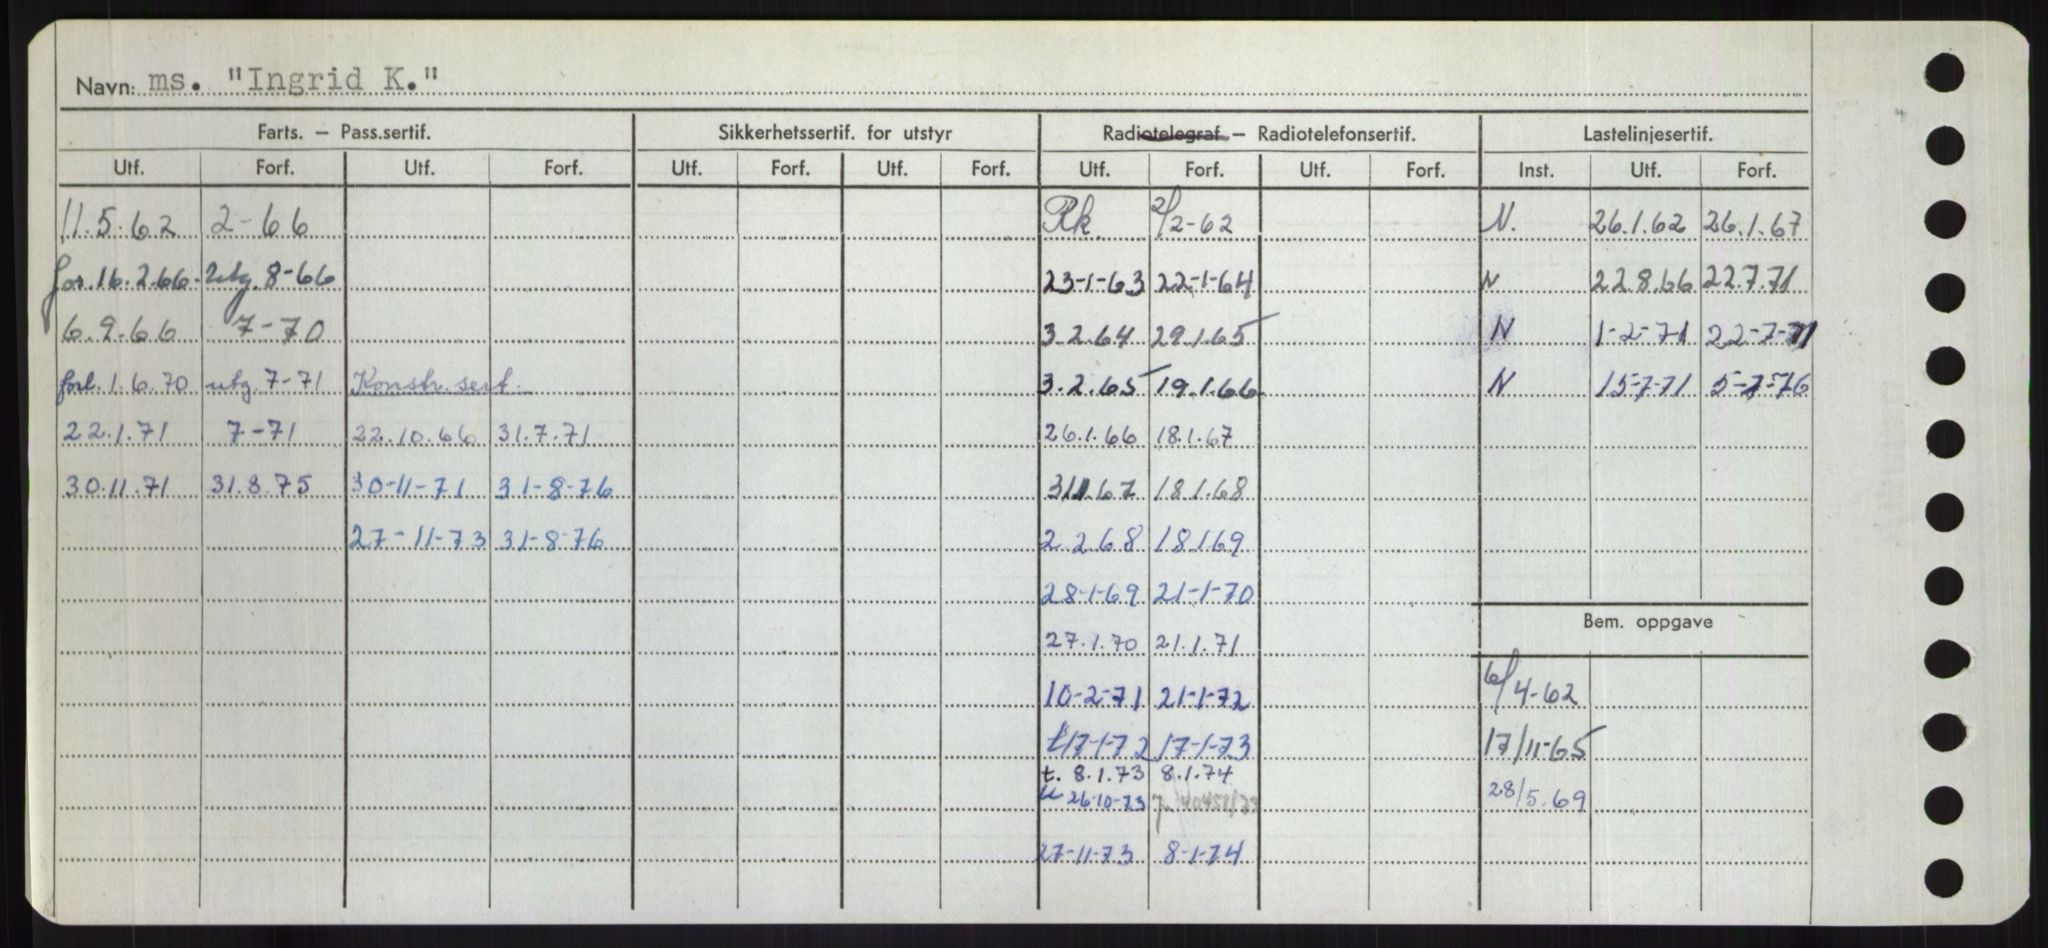 Navn: ms. "Ingrid K."
Farts. – Pass.sertif. Sikkerhetssertif. for utstyr Radiotelegraf – Radiotelefonsertif. Lastelinjesertif.
Utf. Forf. Utf. Forf. Utf. Forf. Utf. Forf. Utf. Forf. Utf. Forf. Inst. Utf. Forf.
11.5.62 2-66 Rk. 2/2-62 N. 26.1.62 26.1.67
for. 16.2.66. utg. 8-66 23-1-63 22-1-64 N 22.8.66 22.7.71
6.9.66 7-70 3.2.64 29.1.65 N 1-2-71 22-7-71
forl. 1.6.70 utg. 7-71 Konstr. sert. 3.2.65 19.1.66 N 15-7-71 5-7-76
22.1.71 7-71 22.10.66 31.7.71 26.1.66 18.1.67
30.11.71 31.8.75 30-11-71 31-8-76 311.67 18.1.68
27-11-73 31-8-76 2.2.68 18.1.69
28-1-69 21-1-70
Bem. oppgave
27.1.70 21.1.71
10-2-71 21-1-72 6/4-62
t17-1-72 17-1-73 17/11-65
t. 8.1.73 8.1.74
26-10-73 28/5.69
27-11-73 8-1-74